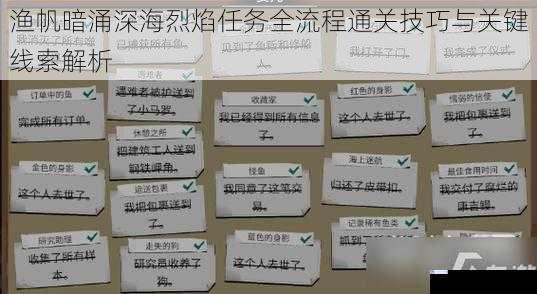 渔帆暗涌深海烈焰任务全流程通关技巧与关键
线索解析
已捕获所有鱼。
见到了鱼贩和修船人。
我打开了门。
我完成了仪式。
订单中的鱼
完成所有订单。
遇难者
遇难者被护送到了小马罗。
收藏家
我已经得到所有信息了。
红色的身影
这个人去世了。
懦弱的信使
我把包裹送到了。
休憩之所
把建筑工人送到钢铁岬角。
金色的身影
这个人去世了。
追送包裹
我把包裹送到了。
怪鱼
我同意了这笔交易。
海上迷航
归还了皮带扣。
最佳食用时间
我交付了腐烂的
研究助理
收集了所有样本。
走失的狗
研究员收养了狗。
蓝色的身影
这个人去世了。
记录稀有鱼类
抓到了